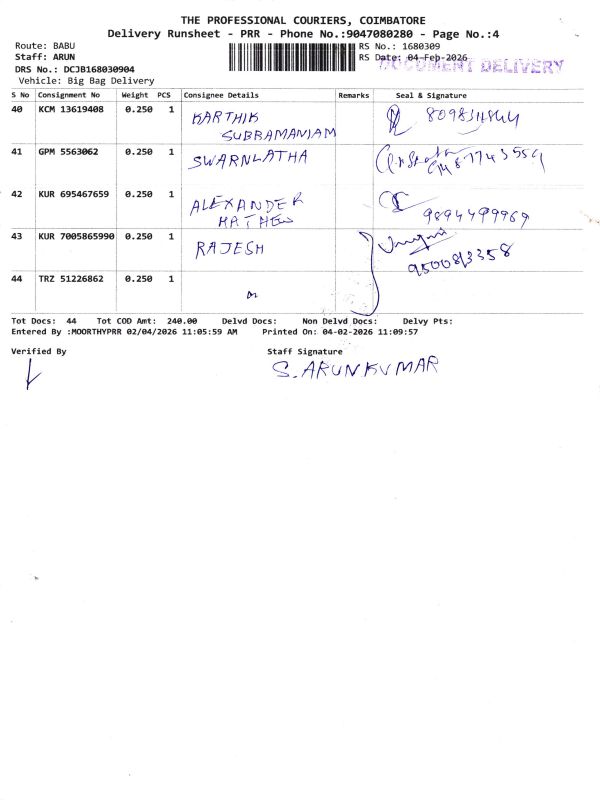 THE PROFESSIONAL COURIERS, COIMBATORE
Delivery Runsheet - PRR - Phone No.:9047080280 - Page No.:4
Route: BABU
RS No.: 1680309
Staff: ARUN
RS Date: 04-Feb-2026
DOCUMENT DELIVERY
DRS No.: DCJB168030904
Vehicle: Big Bag Delivery
S No Consignment No Weight PCS Consignee Details Remarks Seal & Signature
40 KCM 13619408 0.250 1 KARTHIK
SUBRAMANIAM
41 GPM 5563062 0.250 1 SWARNLATHA
42 KUR 695467659 0.250 1 ALEXANDER
MATHEW
9894499969
43 KUR 7005865990 0.250 1 RAJESH
9500813358
44 TRZ 51226862 0.250 1
Tot Docs: 44 Tot COD Amt: 240.00 Delvd Docs: Non Delvd Docs: Delvy Pts:
Entered By :MOORTHYPRR 02/04/2026 11:05:59 AM Printed On: 04-02-2026 11:09:57
Verified By Staff Signature
S. ARUNKUMAR